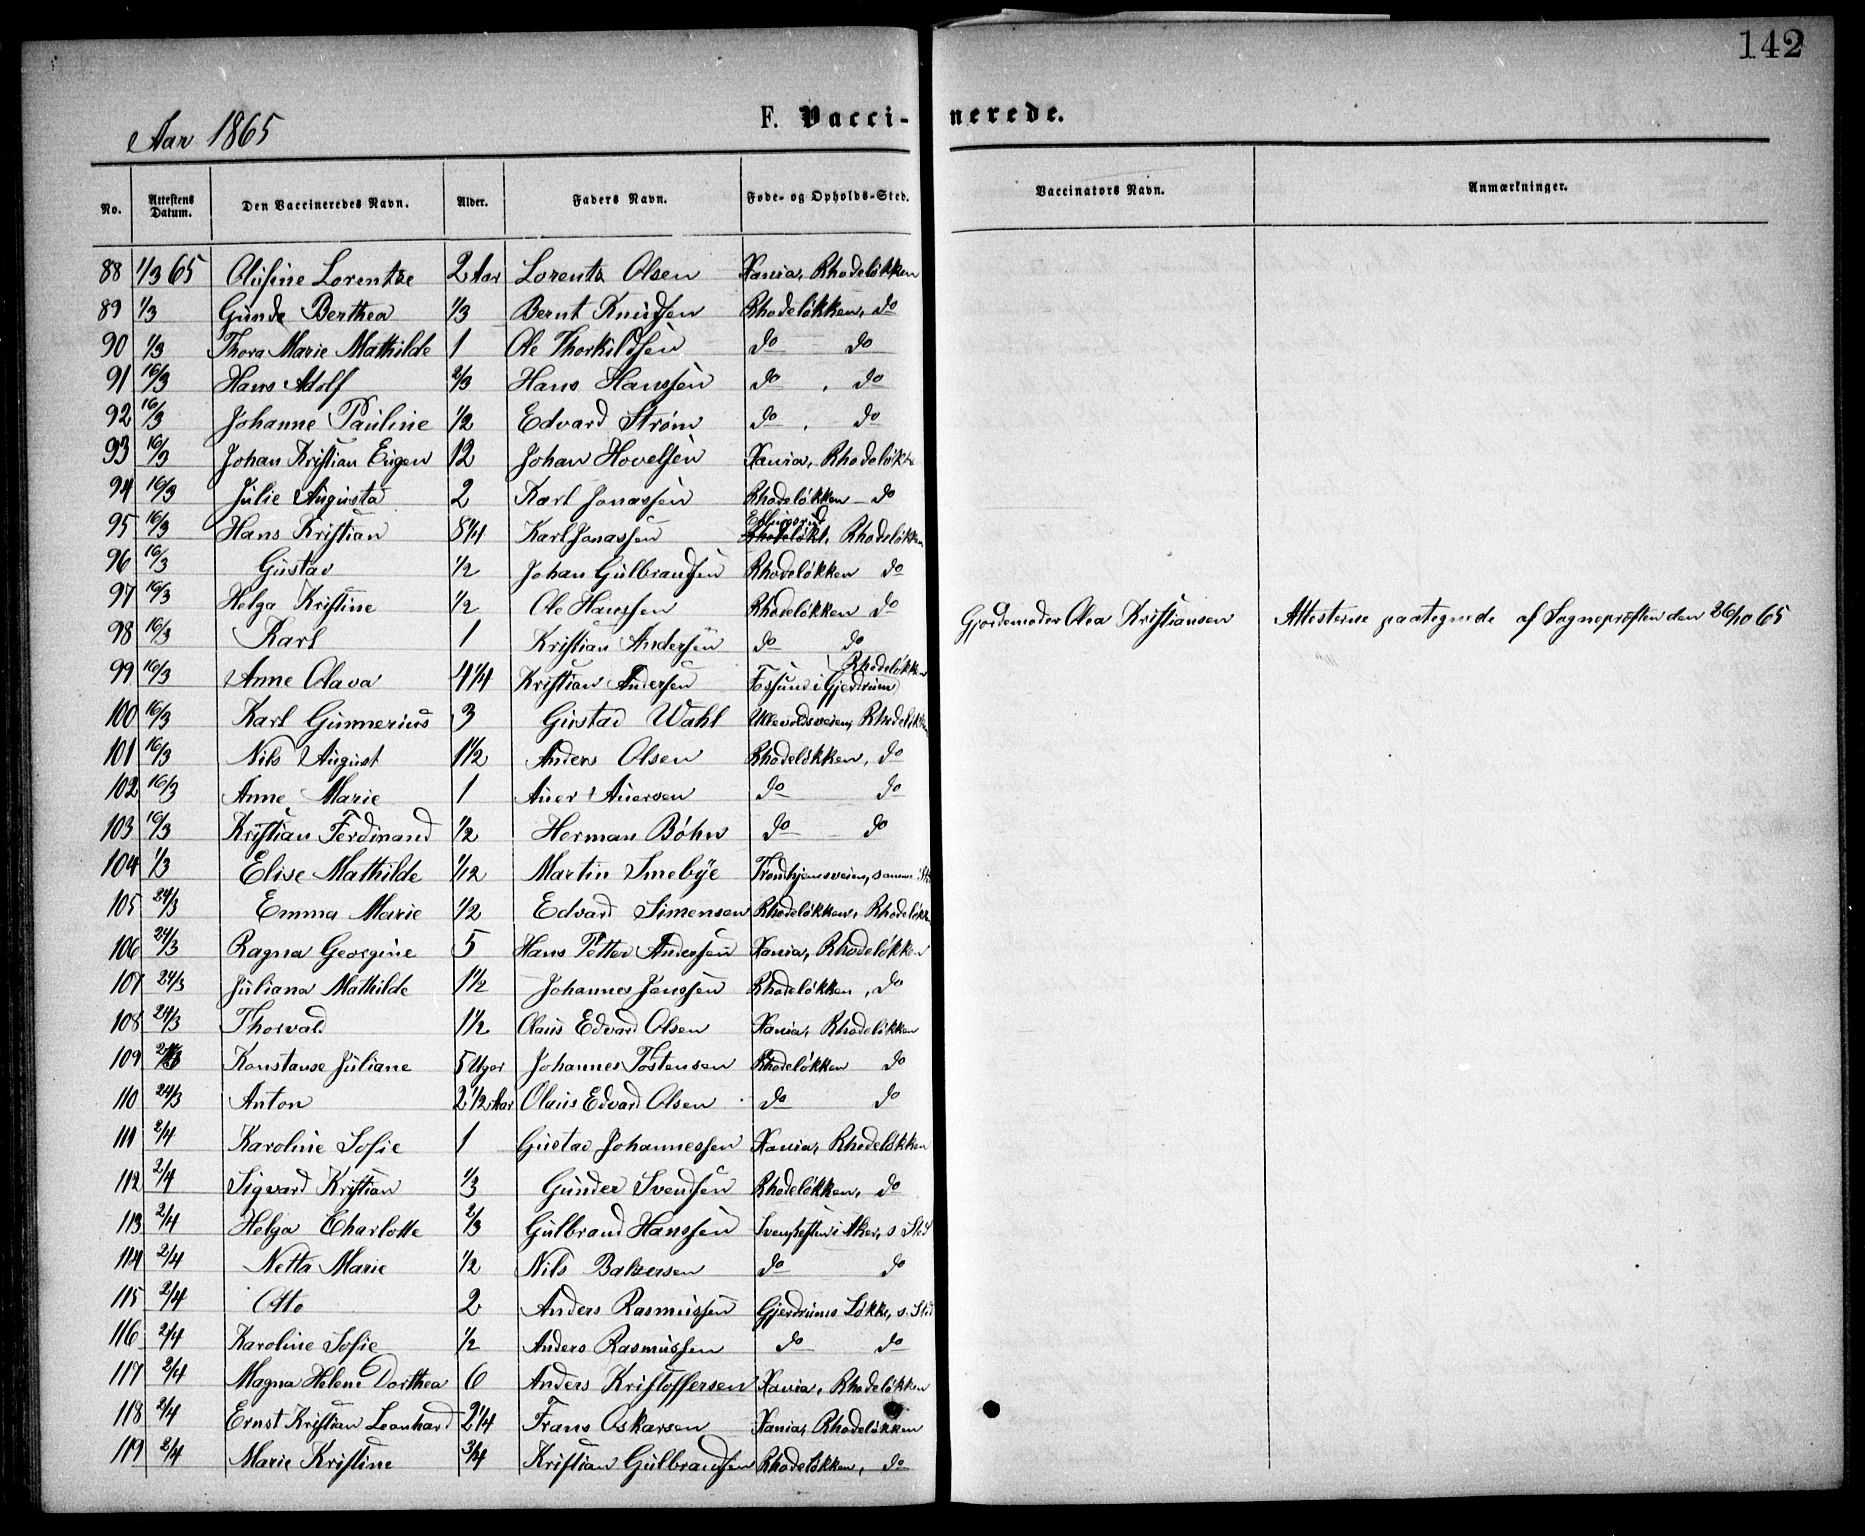 142
Aar 1865
F. Vaccinerede.
No. Attestens Datum. Den Vaccineredes Navn. Alder. Faders Navn. Føde- og Opholds-Sted. Vaccinators Navn. Anmærkninger.
88 1/3 65 Olufine Lorentze 2 Aar Lorentz Olsen Xania, Rhodeløkken
89 1/3 Gunda Berthea 1/3 Bernt Knudsen Rhodeløkken, do
90 1/3 Thora Marie Mathilde 1 Ole Thorkildsen do do
91 16/3 Hans Adolf 2/3 Hans Hanssen do , do
92 16/3 Johanne Pauline 1/2 Edvard Strøm do , do
93 16/3 Johan Kristian Eugen 12 Johan Hovelsen Xania, Rhodeløkk
94 16/3 Julie Augusta 2 Karl Jonassen Rhodeløkken do
95 16/3 Hans Kristian 8 1/4 Karl Jonassen Rhodeløkk, Rhodeløkken
96 16/3 Gustav 1/2 Johan Gulbrandsen Rhodeløkken do
97 16/3 Helga Kristine 1/2 Ole Hanssen Rhodeløkken do Gjordemoder Olea Kristiansen Attesterne paategnede af Sogneprøsten den 26/10 65
98 16/3 Karl 1 Kristian Andersen do do
99 16/3 Anne Olava 4 1/4 Kristian Andersen Fossund i Gjerdrum, Rhodeløkken
100 16/3 Karl Gunnerius 3 Gustav Wahl Ullevoldsveien, Rhodeløkken
101 16/3 Nils August 1 1/2 Anders Olsen Rhodeløkken, do
102 16/3 Anne Marie 1 Auer Auersen do do
103 16/3 Kristian Ferdinand 1/2 Herman Bøhn do do
104 1/3 Elise Mathilde 1/12 Martin Smebye Trondhjemsveien, samme St
105 24/3 Emma Marie 1/2 Edvard Simensen Rhodeløkken, Rhodeløkk
106 24/3 Ragna Georgine 5 Hans Petter Andersen Xania, Rhodeløkken
107 24/3 Juliana Mathilde 1 1/2 Johannes Jenssen Rhodeløkken, do
108 24/3 Thorvald 1 1/2 Olaus Edvard Olsen Xania, Rhodeløkken
109 Konstanse Juliane 5 Uger Johannes Tostensen Rhodeløkken do
110 24/3 Anton 2 1/2 Aar Olaus Edvard Olsen do do
111 2/4 Karoline Sofie 1 Gustav Johannessen Xania, Rhodeløkken
112 2/4 Sigvard Kristian 1/3 Gunder Svendsen Rhodeløkken, do
113 2/4 Helga Charlotte 2/3 Gulbrand Hanssen i Aker, s Sted
114 2/4 Netta Marie 1/2 Nils Balzersen do do
115 2/4 Otto 2 Anders Rasmussen Gjerdrums Løkke, s. Sted
116 2/4 Karoline Sofie 1/2 Anders Rasmussen do do
117 2/4 Magna Helene Dorthea 6 Anders Kristoffersen Xania, Rhodeløkken
118 2/4 Ernst Kristian Leonhard 2 1/4 Frans Oskarsen Xania, Rhodeløkken
119 2/4 Marie Kristine 3/4 Kristian Gulbrandsen Rhodeløkken, do